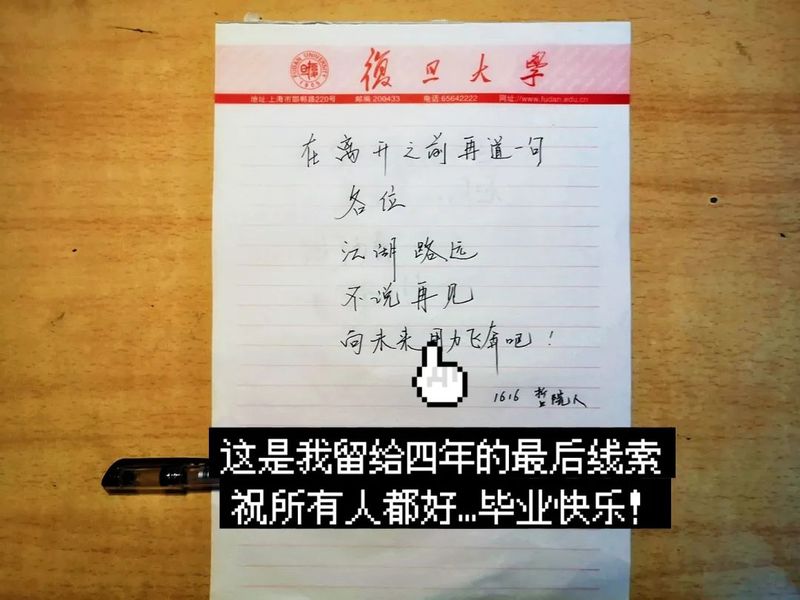 FUDAN UNIVERSITY
1905
復旦大學
地址 上海市邯郸路220号 邮编 200433 电话 65642222 网址://www.fudan.edu.cn
在离开之前再道一句
各位
江湖路远
不说再见
向未来用力飞奔吧！
1616 哲院人
这是我留给四年的最后线索
祝所有人都好...毕业快乐！